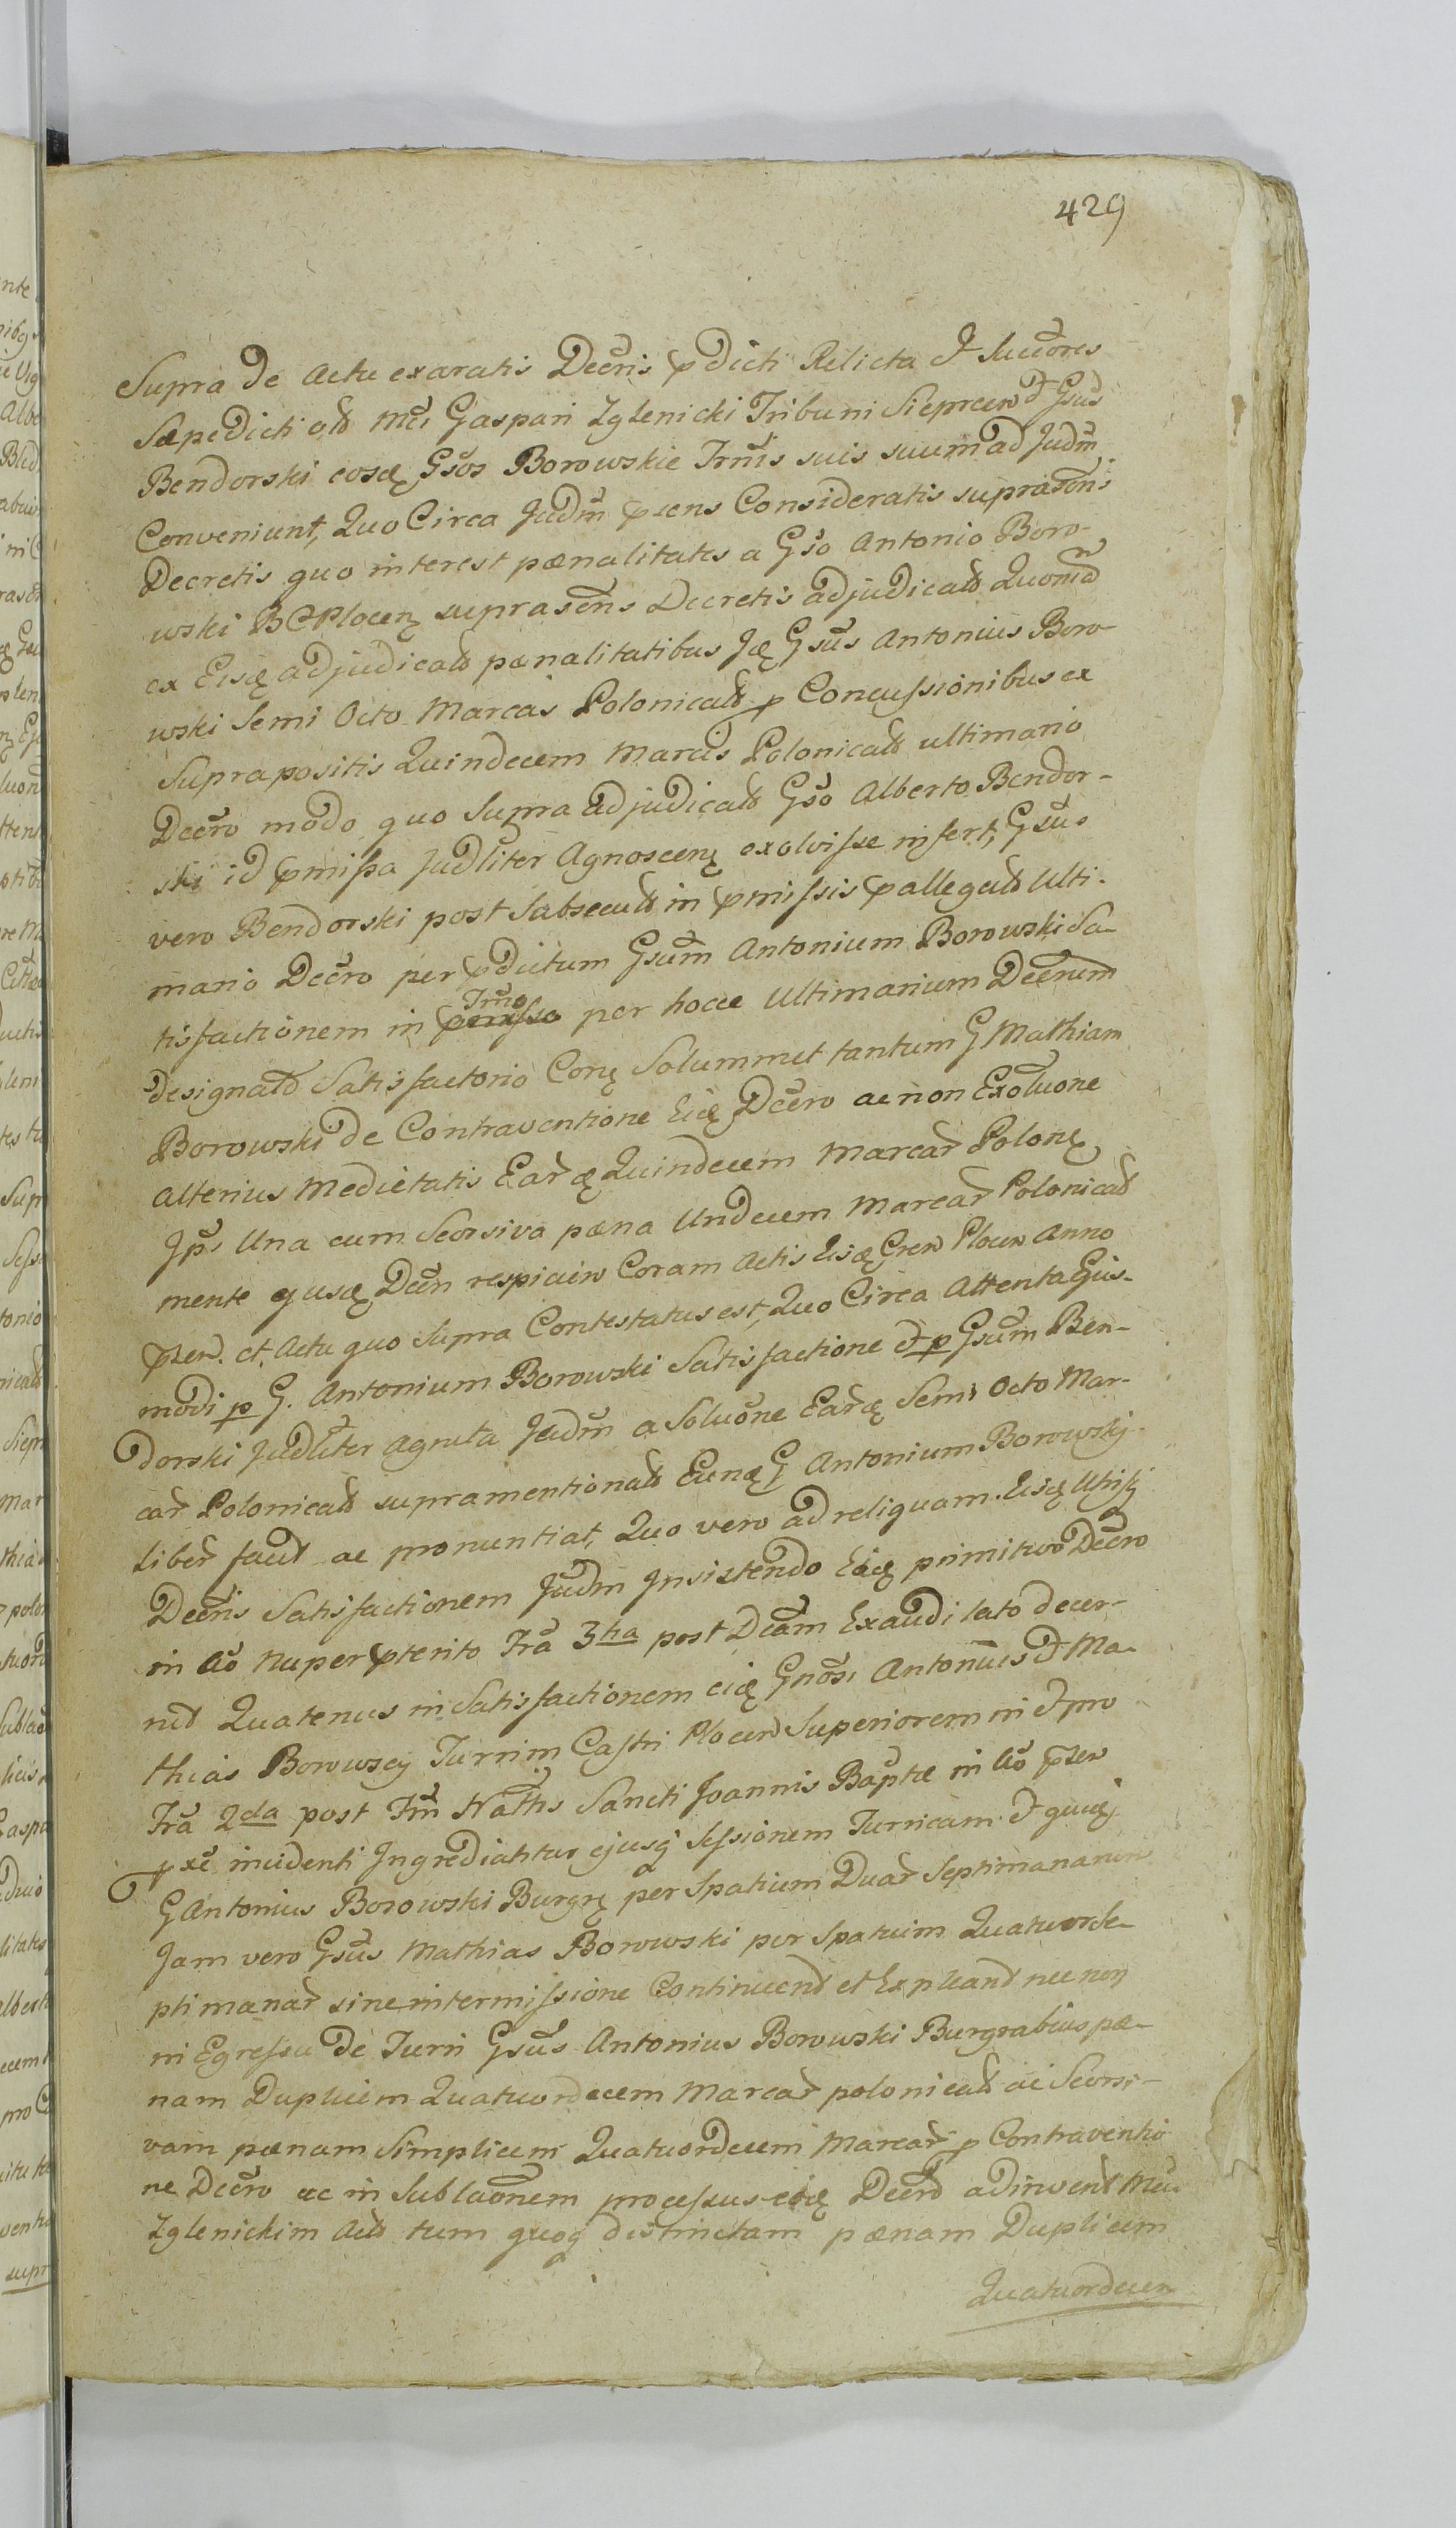 429
Supra de Actu exaratis Decris pdicti Relicta et Succores
Sæpedicti olb Mci Gaspari Zglenicki Tribuni Sieprcen et Gsus
Bendorski eosq Gsos Borowskie Trmis suis suum ad Judm
Conveniunt, Quo Circa Judm psens Consideratis suprascns
Decretis quo interest pænalitates a Gso Antonio Boro-
wski BCPlocen suprascns Decretis adjudicat Quonia
ex Eisq adjudicat pænalitatibus Jq Gsus Antonius Boro-
wski Semi Octo Marcas Polonicat p Concussionibus ex
Suprapositis Quindecem Marcis Polonicat ultimario
Decro modo quo Supra adjudicat Gso Alberto Bendor-
ski id pmissa Judliter Agnoscen exolvisse infert, Gsus
vero Bendorski post Subsecut in pmissis pallegat Ulti-
mario Decro per pdictum Gsum Antonium Borowski Sa-
tisfactionem in Trmo per hocce Ultimarium Decrum
designato Satisfactorio Conq Solummet tantum G Mathiam
Borowski de Contraventione Eidq Decro ac non Exoluone
alterius Medietatis Earq Quindecem Marcar Polonq
Jpsi Una cum Seorsiva pæna Undecem Marcar Polonicat
mente ejusq Decri respicien Coram Actis Eisq Cren Plocen Anno
psen. et. Actu quo Supra Contestatus est, Quo Circa Attenta Ejus-
modi p G. Antonium Borowski Satisfactione et p Gsum Ben-
dorski Judliter agnita Judm a Soluone Earq Semi Octo Mar-
car Polonicat supramentionat Eunq G Antonium Borowski
Liber facit ac pronuntiat, Quo vero ad reliquam Eisq Utrisq
Decris Satisfactionem Judm Insistendo Eidq primitivo Decro
in Ao nuper pterito Fra 3tia post Dcam Exaudi lato decer-
nit Quatenus in Satisfactionem eidq Gnosi Antonius et Ma-
thias Borowscy Turrim Castri Plocen Superiorem in et pro
Fra 2da post Fm Natts Sancti Joannis Baptæ in Ao psen
pxe incidenti Ingrediantur ejusq Sessionem Turricam et quidq
G Antonius Borowski Burgrq per Spatium Duar Septimanarum
Jam vero Gsus Mathias Borowski per Spatium Quatuor Se-
ptimanar sine intermissione Continuend et Expleand nec non
in Egressu de Turri Gsus Antonius Borowski Burgrabius pæ-
nam Duplicem Quatuordecem Marcar polonicat ac Seorsi-
vam pænam Simplicem Quatuordecem Marcar p Contraventio
ne Decro ac in Sublaonem processus eidq Decro adinvent Mcu
Zglenickim Act tum quoq distinctam pænam Duplicem
Quatuordecem